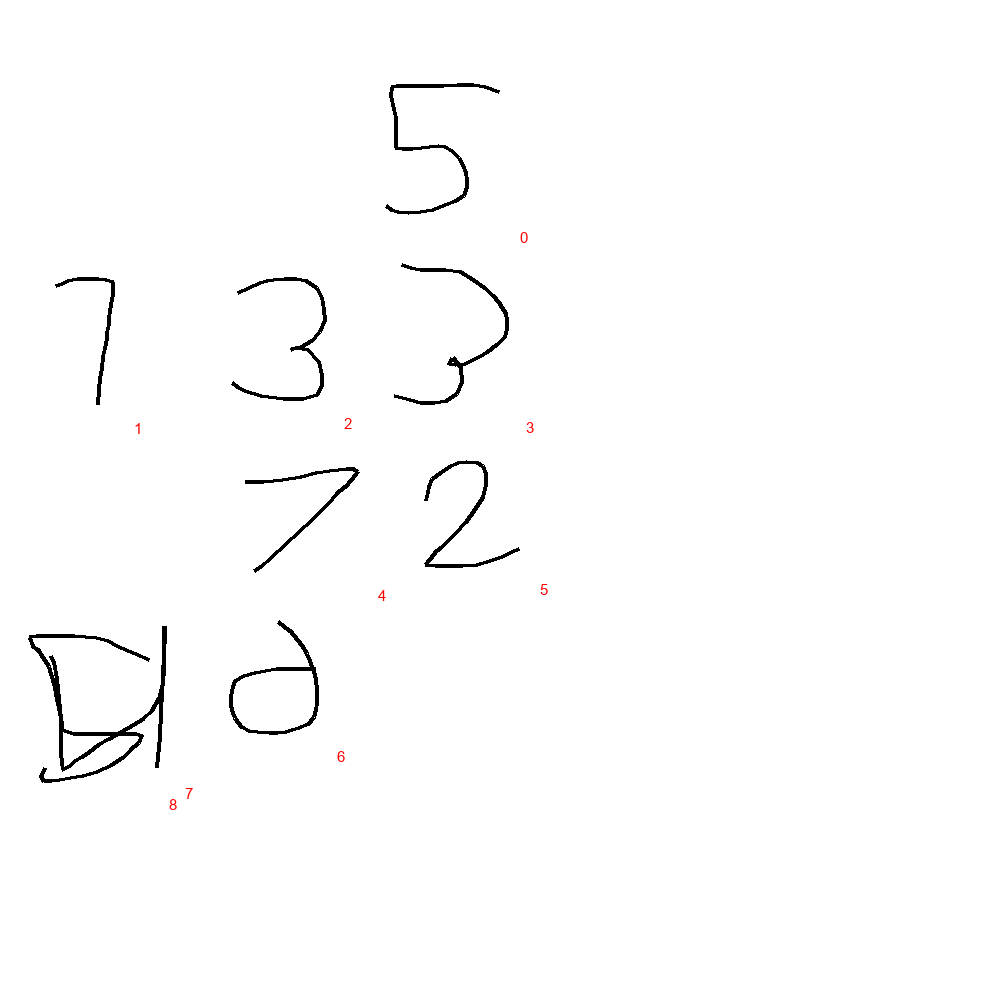 5
0
7 3 3
1 2 3
7 2
4 5
6
7
8